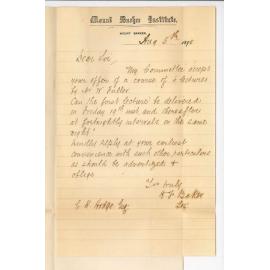 Mount Barker Institute.
MOUNT BARKER,
Aug 5th 1890
Dear Sir
My Committee accept
your offer of a course of 4 lectures
by Mr W Fuller
Can the first lecture be delivered
on Friday 19th inst and thereafter
at fortnightly intervals on the same
night?
Kindly reply at your earliest
convenience with such other particulars
as should be advertized &
oblige
Yrs truly
Barker
Sec
G. H. Hodge Esq